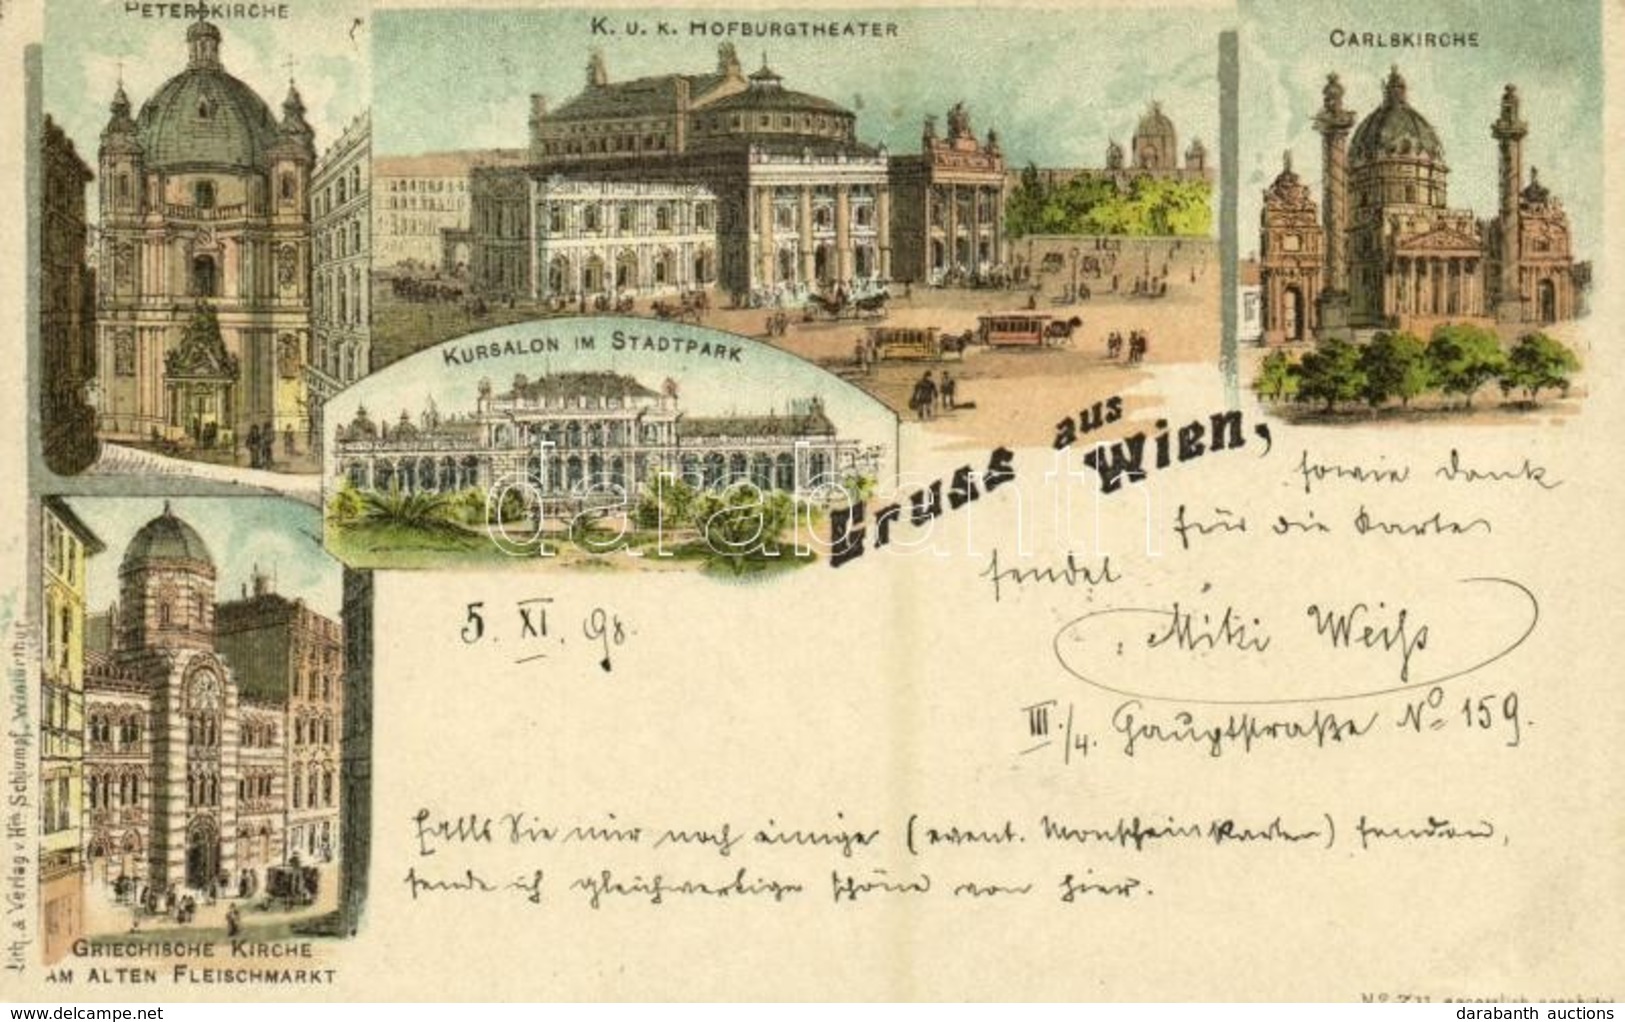 PETERSKIRCHE
K. U. K. HOFBURGTHEATER
CARLSKIRCHE
KURSALON IM STADTPARK
Gruss aus Wien,
sowie Dank
für die Karten
sendet
Miki Weiss
III./4. Hauptstraße No 159.
5. XI. 98.
Falls Sie mir noch einige (event. Monscheinkarten) senden,
sende ich gleichwertige schöne von hier.
GRIECHISCHE KIRCHE
AM ALTEN FLEISCHMARKT
Lith. & Verlag v. Hch Schlumpf, Winterthur
darabanth
www.delcampe.net
darabanth auctions